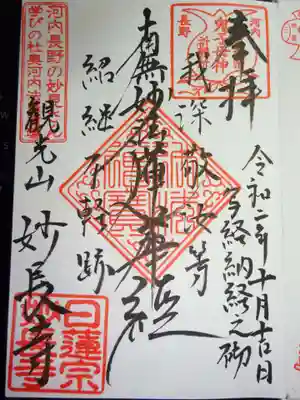 奉拝
令和二年十月
写経納経之砌
我深敬汝等
南無妙法蓮華経
紹継不軽跡
観光山 妙長寺
河内長野の妙見さん
学びの社奥河内
河内
長野
日蓮宗
妙長寺